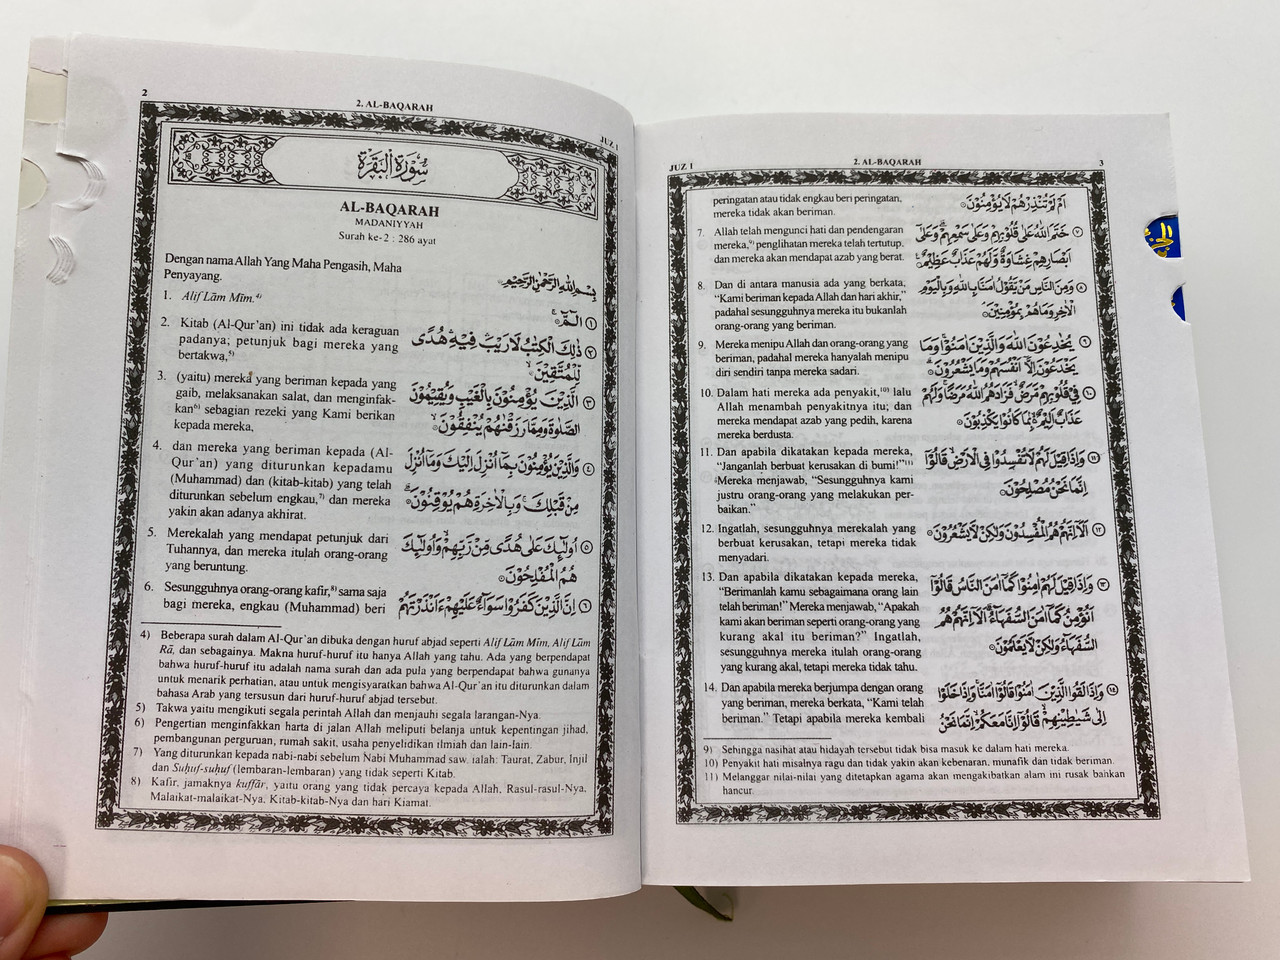 2
2. AL-BAQARAH
JUZ 1
سُورَةُ الْبَقَرَةِ
AL-BAQARAH
MADANIYYAH
Surah ke-2 : 286 ayat
Dengan nama Allah Yang Maha Pengasih, Maha
Penyayang.
بِسْمِ اللهِ الرَّحْمٰنِ الرَّحِيْمِ
1. Alif Lām Mīm.⁴⁾
١ الۤمّۤ
2. Kitab (Al-Qur'an) ini tidak ada keraguan
padanya; petunjuk bagi mereka yang
bertakwa,⁵⁾
٢ ذٰلِكَ الْكِتٰبُ لَا رَيْبَ فِيْهِ هُدًى
لِّلْمُتَّقِيْنَ
3. (yaitu) mereka yang beriman kepada yang
gaib, melaksanakan salat, dan menginfak-
kan⁶⁾ sebagian rezeki yang Kami berikan
kepada mereka,
٣ الَّذِيْنَ يُؤْمِنُوْنَ بِالْغَيْبِ وَيُقِيْمُوْنَ
الصَّلٰوةَ وَمِمَّا رَزَقْنٰهُمْ يُنْفِقُوْنَ
4. dan mereka yang beriman kepada (Al-
Qur'an) yang diturunkan kepadamu
(Muhammad) dan (kitab-kitab) yang telah
diturunkan sebelum engkau,⁷⁾ dan mereka
yakin akan adanya akhirat.
٤ وَالَّذِيْنَ يُؤْمِنُوْنَ بِمَآ اُنْزِلَ اِلَيْكَ وَمَآ اُنْزِلَ
مِنْ قَبْلِكَ وَبِالْاٰخِرَةِ هُمْ يُوْقِنُوْنَ
5. Merekalah yang mendapat petunjuk dari
Tuhannya, dan mereka itulah orang-orang
yang beruntung.
٥ اُولٰۤىِٕكَ عَلٰى هُدًى مِّنْ رَّبِّهِمْ وَاُولٰۤىِٕكَ
هُمُ الْمُفْلِحُوْنَ
6. Sesungguhnya orang-orang kafir,⁸⁾ sama saja
bagi mereka, engkau (Muhammad) beri
٦ اِنَّ الَّذِيْنَ كَفَرُوْا سَوَاۤءٌ عَلَيْهِمْ ءَاَنْذَرْتَهُمْ
4) Beberapa surah dalam Al-Qur'an dibuka dengan huruf abjad seperti Alif Lām Mīm, Alif Lām
Rā, dan sebagainya. Makna huruf-huruf itu hanya Allah yang tahu. Ada yang berpendapat
bahwa huruf-huruf itu adalah nama surah dan ada pula yang berpendapat bahwa gunanya
untuk menarik perhatian, atau untuk mengisyaratkan bahwa Al-Qur'an itu diturunkan dalam
bahasa Arab yang tersusun dari huruf-huruf abjad tersebut.
5) Takwa yaitu mengikuti segala perintah Allah dan menjauhi segala larangan-Nya.
6) Pengertian menginfakkan harta di jalan Allah meliputi belanja untuk kepentingan jihad,
pembangunan perguruan, rumah sakit, usaha penyelidikan ilmiah dan lain-lain.
7) Yang diturunkan kepada nabi-nabi sebelum Nabi Muhammad saw. ialah: Taurat, Zabur, Injil
dan Suḥuf-suḥuf (lembaran-lembaran) yang tidak seperti Kitab.
8) Kafir, jamaknya kuffār, yaitu orang yang tidak percaya kepada Allah, Rasul-rasul-Nya,
Malaikat-malaikat-Nya, Kitab-kitab-Nya dan hari Kiamat.
JUZ 1
2. AL-BAQARAH
3
peringatan atau tidak engkau beri peringatan,
mereka tidak akan beriman.
اَمْ لَمْ تُنْذِرْهُمْ لَا يُؤْمِنُوْنَ
7. Allah telah mengunci hati dan pendengaran
mereka,⁹⁾ penglihatan mereka telah tertutup,
dan mereka akan mendapat azab yang berat.
٧ خَتَمَ اللهُ عَلٰى قُلُوْبِهِمْ وَعَلٰى سَمْعِهِمْ وَعَلٰٓى
اَبْصَارِهِمْ غِشَاوَةٌ وَّلَهُمْ عَذَابٌ عَظِيْمٌ
8. Dan di antara manusia ada yang berkata,
“Kami beriman kepada Allah dan hari akhir,”
padahal sesungguhnya mereka itu bukanlah
orang-orang yang beriman.
٨ وَمِنَ النَّاسِ مَنْ يَّقُوْلُ اٰمَنَّا بِاللهِ وَبِالْيَوْمِ
الْاٰخِرِ وَمَا هُمْ بِمُؤْمِنِيْنَ
9. Mereka menipu Allah dan orang-orang yang
beriman, padahal mereka hanyalah menipu
diri sendiri tanpa mereka sadari.
٩ يُخٰدِعُوْنَ اللهَ وَالَّذِيْنَ اٰمَنُوْا وَمَا
يَخْدَعُوْنَ اِلَّآ اَنْفُسَهُمْ وَمَا يَشْعُرُوْنَ
10. Dalam hati mereka ada penyakit,¹⁰⁾ lalu
Allah menambah penyakitnya itu; dan
mereka mendapat azab yang pedih, karena
mereka berdusta.
١٠ فِيْ قُلُوْبِهِمْ مَّرَضٌ فَزَادَهُمُ اللهُ مَرَضًا وَلَهُمْ
عَذَابٌ اَلِيْمٌ بِمَا كَانُوْا يَكْذِبُوْنَ
11. Dan apabila dikatakan kepada mereka,
“Janganlah berbuat kerusakan di bumi!”¹¹⁾
Mereka menjawab, “Sesungguhnya kami
justru orang-orang yang melakukan per-
baikan.”
١١ وَاِذَا قِيْلَ لَهُمْ لَا تُفْسِدُوْا فِى الْاَرْضِ قَالُوْٓا
اِنَّمَا نَحْنُ مُصْلِحُوْنَ
12. Ingatlah, sesungguhnya merekalah yang
berbuat kerusakan, tetapi mereka tidak
menyadari.
١٢ اَلَآ اِنَّهُمْ هُمُ الْمُفْسِدُوْنَ وَلٰكِنْ لَّا يَشْعُرُوْنَ
13. Dan apabila dikatakan kepada mereka,
“Berimanlah kamu sebagaimana orang lain
telah beriman!” Mereka menjawab, “Apakah
kami akan beriman seperti orang-orang yang
kurang akal itu beriman?” Ingatlah,
sesungguhnya mereka itulah orang-orang
yang kurang akal, tetapi mereka tidak tahu.
١٣ وَاِذَا قِيْلَ لَهُمْ اٰمِنُوْا كَمَآ اٰمَنَ النَّاسُ قَالُوْٓا
اَنُؤْمِنُ كَمَآ اٰمَنَ السُّفَهَاۤءُ اَلَآ اِنَّهُمْ هُمُ
السُّفَهَاۤءُ وَلٰكِنْ لَّا يَعْلَمُوْنَ
14. Dan apabila mereka berjumpa dengan orang
yang beriman, mereka berkata, “Kami telah
beriman.” Tetapi apabila mereka kembali
١٤ وَاِذَا لَقُوا الَّذِيْنَ اٰمَنُوْا قَالُوْٓا اٰمَنَّا وَاِذَا خَلَوْا
اِلٰى شَيٰطِيْنِهِمْ قَالُوْٓا اِنَّا مَعَكُمْ اِنَّمَا نَحْنُ
9) Sehingga nasihat atau hidayah tersebut tidak bisa masuk ke dalam hati mereka.
10) Penyakit hati misalnya ragu dan tidak yakin akan kebenaran, munafik dan tidak beriman.
11) Melanggar nilai-nilai yang ditetapkan agama akan mengakibatkan alam ini rusak bahkan
hancur.